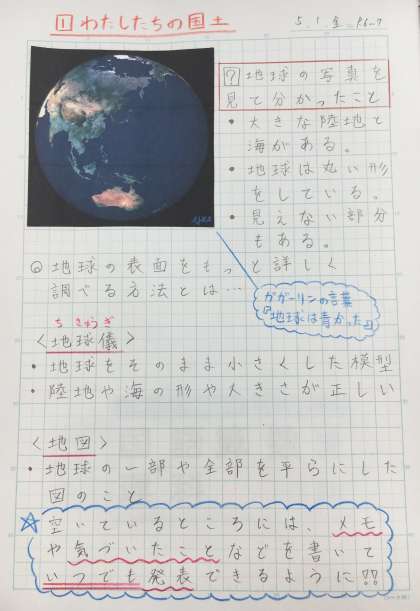 1 わたしたちの国土
5.1.金 P6~7
? 地球の写真を
見て分かったこと
・大きな陸地と
海がある。
・地球は丸い形
をしている。
・見えない部分
もある。
◎地球の表面をもっと詳しく
調べる方法とは…
ガガーリンの言葉
『地球は青かった』
ち きゅう ぎ
<地球儀>
・地球をそのまま小さくした模型
・陸地や海の形や大きさが正しい
<地図>
・地球の一部や全部を平らにした
図のこと
☆空いているところには、メモ
や気づいたことなどを書いて
いつでも発表できるように!!